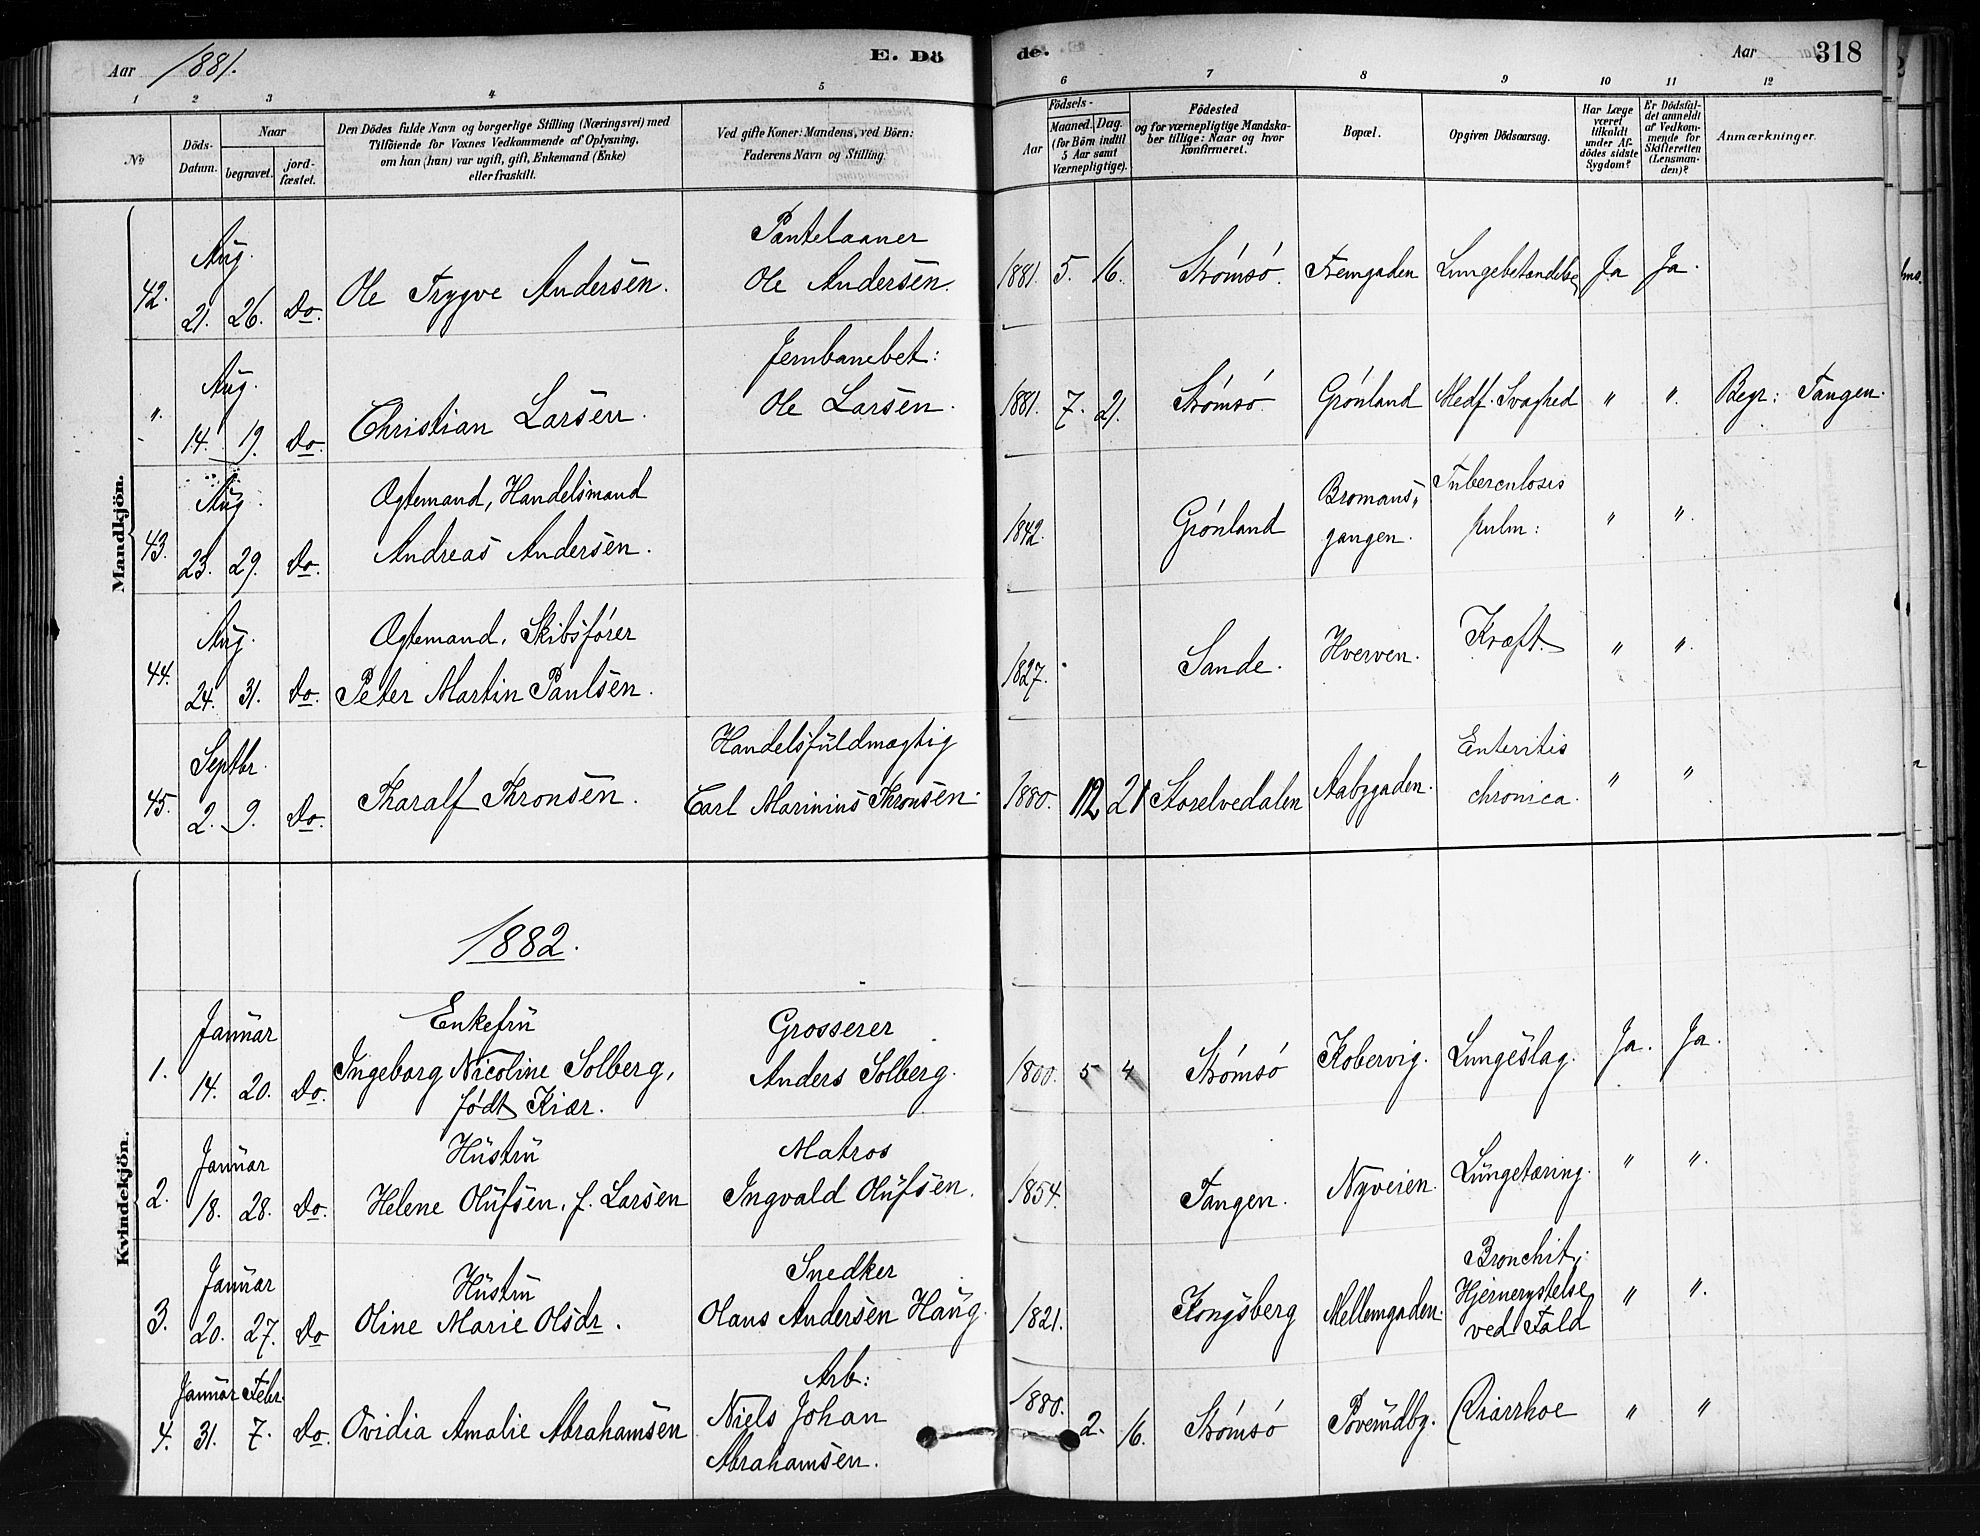 Aar 1881. E. Dö de. Aar 318
1 2 3 4 5 6 7 8 9 10 11 12
No
Döds-Datum.
Naar
begravet.
jord-fæstet.
Den Dödes fulde Navn og borgerlige Stilling (Næringsvei) med
Tilföiende for Voxnes Vedkommende af Oplysning,
om han (hun) var ugift, gift, Enkemand (Enke)
eller fraskilt.
Ved gifte Koner: Mandens, ved Börn:
Faderens Navn og Stilling.
Födsels-
Aar
Maaned. Dag.
(for Börn indtil
5 Aar samt
Værnepligtige).
Födested
og for værnepligtige Mandska-
ber tillige: Naar og hvor
konfirmeret.
Bopæl.
Opgiven Dödsaarsag.
Har Læge
været
tilkaldt
under Af-
dödes sidste
Sygdom?
Er Dödsfal-
det anmeldt
af Vedkom-
mende for
Skifteretten
(Lensman-
den)?
Anmærkninger.
Mandkjön.
Aug. Pantelaaner
42. 21. 26. Do. Ole Trygve Andersen. Ole Andersen. 1881. 5. 16. Strømsø. Tremgaden Lungebetændelse Ja Ja.
Aug. Jernbanebet:
". 14. 19. Do. Christian Larsen. Ole Larsen. 1881. 7. 21. Strømsø. Grønland Medf. Svaghed " ". Begr: Tangen.
Aug. Ægtemand, Handelsmand Bromans- Tuberculosis
43. 23. 29. Do. Andreas Andersen. 1842. Grønland gangen. pulm: " ".
Aug. Ægtemand, Skibsfører
44. 24. 31. Do. Peter Martin Paulsen. 1827. Sande. Hverven. Kræft. " ".
Septbr. Handelsfuldmægtig Enteritis
45. 2. 9. Do. Tharalf Thronsen. Carl Marinius Thronsen. 1880. 12 21 Storelvedalen Aabygaden. chronica. " "
Kvindekjön.
1882.
Januar Enkefru Grosserer
1. 14. 20. Do. Ingeborg Nicoline Solberg, Anders Solberg. 1800. 5 4 Strømsø Kobervig. Lungeslag. Ja. Ja.
født Kiær.
Januar Hustru Matros
2. 18. 28. Do. Helene Olufsen, f. Larsen Ingvald Olufsen. 1854. Tangen. Nyveien. Lungetæring. " ".
Januar Hustru Snedker Bronchit:
3. 20. 27. Do Oline Marie Olsdr. Olaus Andersen Haug. 1821. Kongsberg Mellemgaden. Hjernerystelse " ".
ved Fald
Januar Febr. Arb:
4. 31. 7. Do. Ovidia Amalie Abrahamsen Niels Johan 1880. 2. 16. Strømsø Poverudbg. Diarrhoe " "
Abrahamsen.